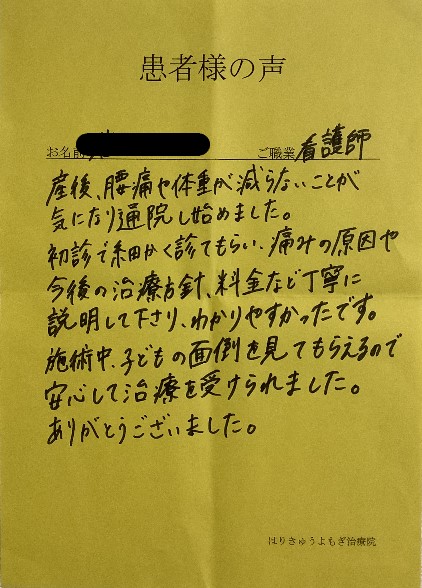 患者様の声
お名前 ご職業 看護師
産後、腰痛や体重が減らないことが
気になり通院し始めました。
初診で細かく診てもらい、痛みの原因や
今後の治療方針、料金など丁寧に
説明して下さり、わかりやすかったです。
施術中、子どもの面倒を見てもらえるので
安心して治療を受けられました。
ありがとうございました。
はりきゅうよもぎ治療院